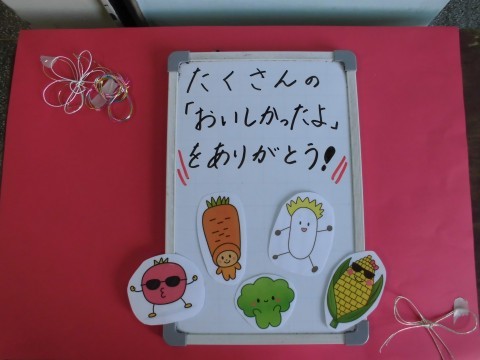 たくさんの
「おいしかったよ」
をありがとう!